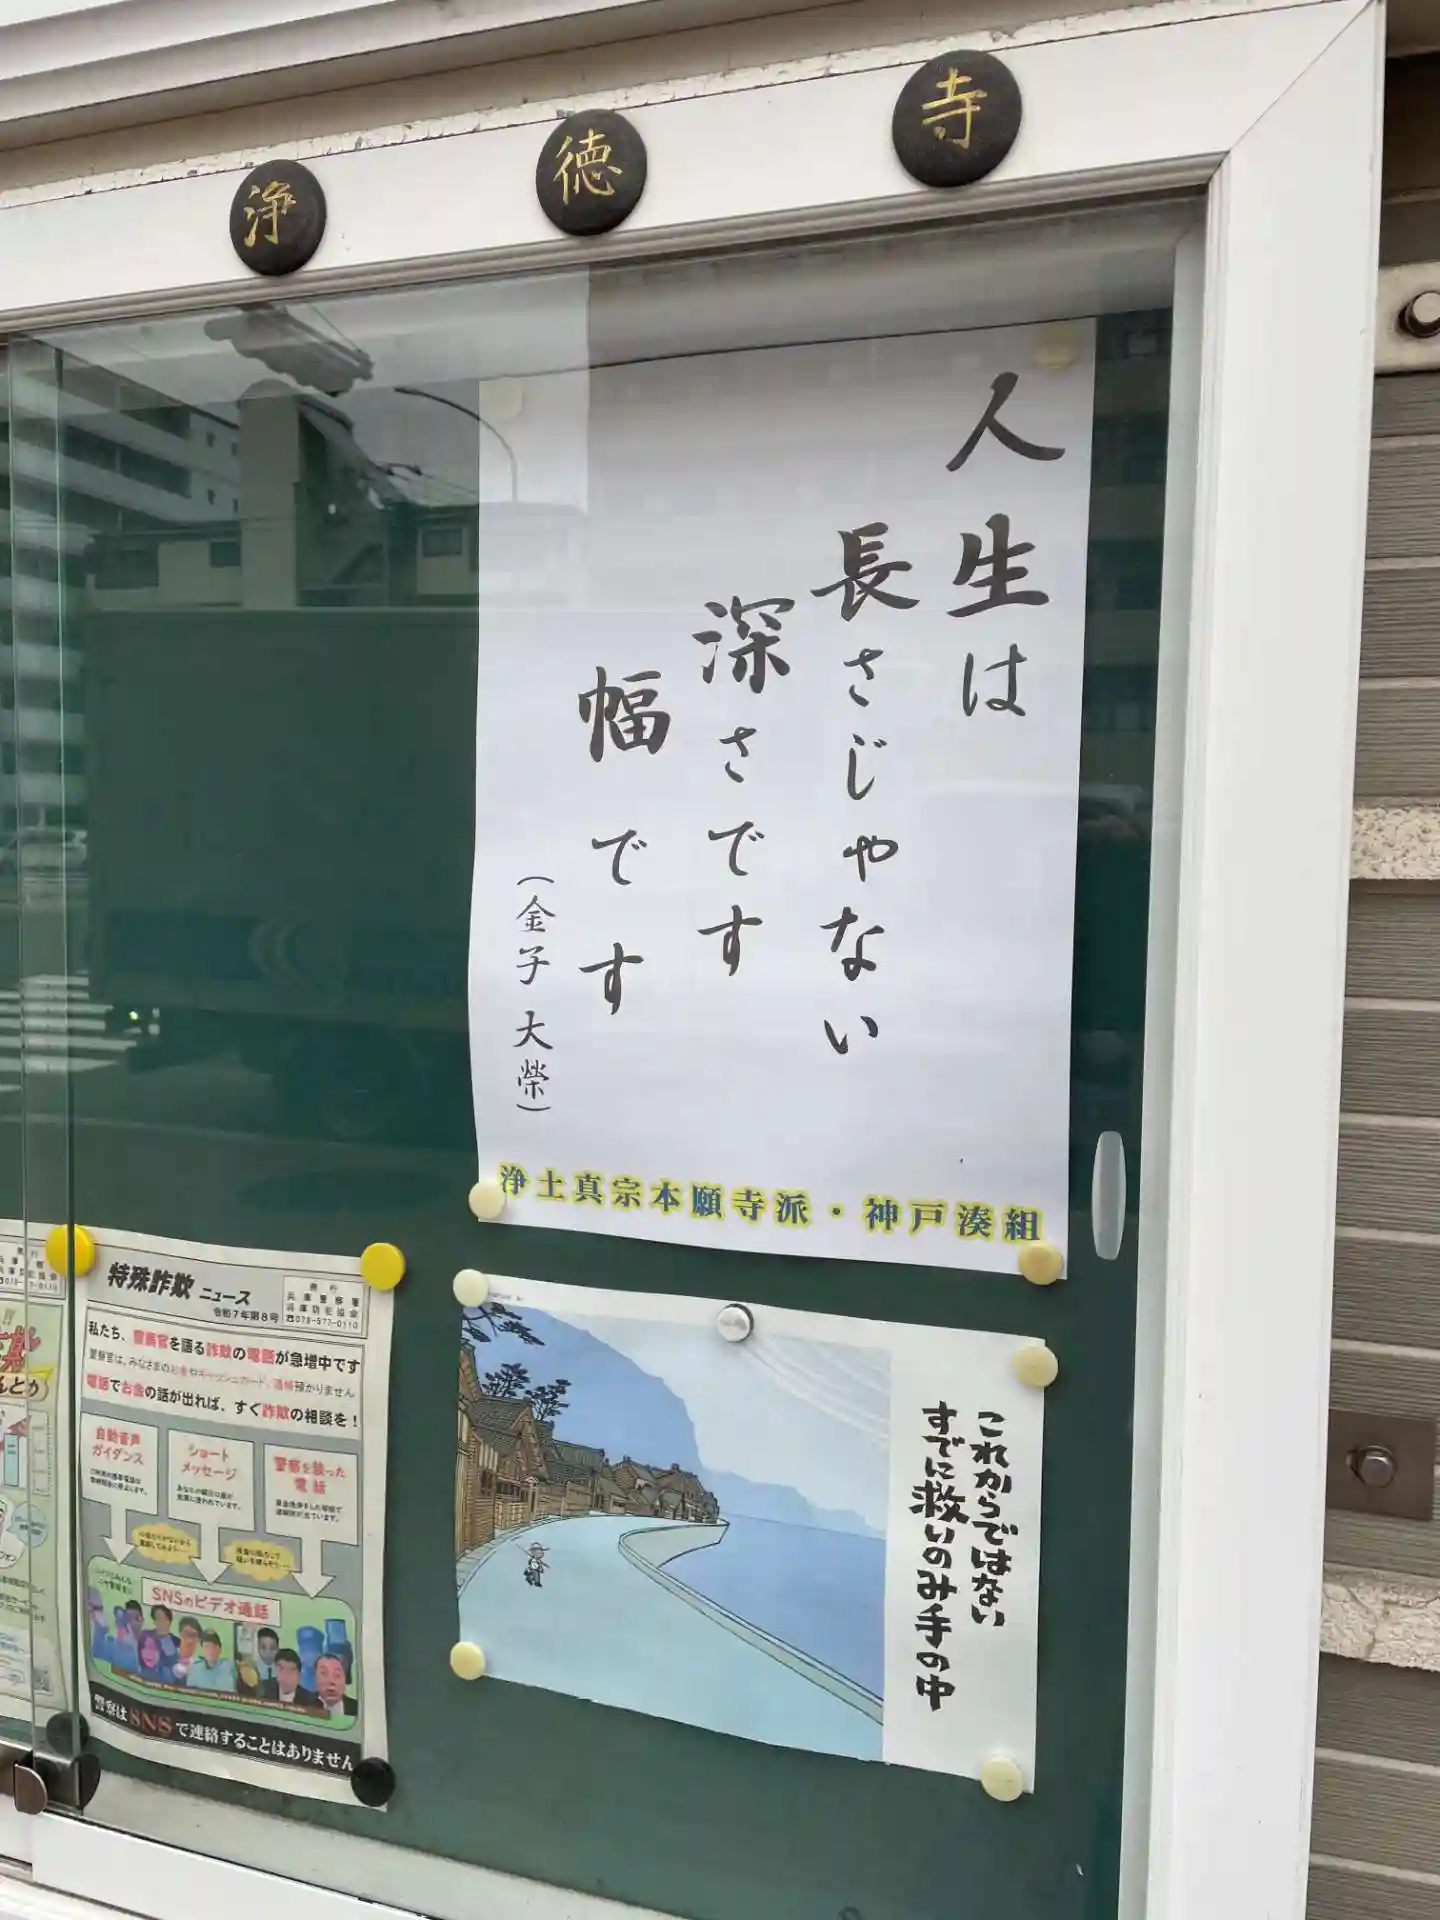 浄徳寺
人生は
長さじゃない
深さです
幅です
(金子大榮)
浄土真宗本願寺派・神戸湊組
これからではない
すでに救いのみ手の中
特殊詐欺ニュース
令和7年第8号
発行
兵庫警察署
兵庫防犯協会
☎078-577-0110
私たち、警察官を語る詐欺の電話が急増中です
警察官は、みなさまのお金やキャッシュカード、通帳預かりません
電話でお金の話が出れば、すぐ詐欺の相談を!
自動音声
ガイダンス
ショート
メッセージ
警察を装った
電話
SNSのビデオ通話
警察はSNSで連絡することはありません